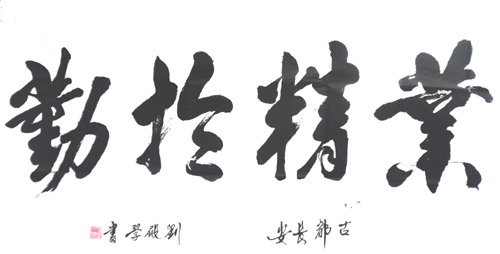 業精於勤
古都長安 劉殿學書